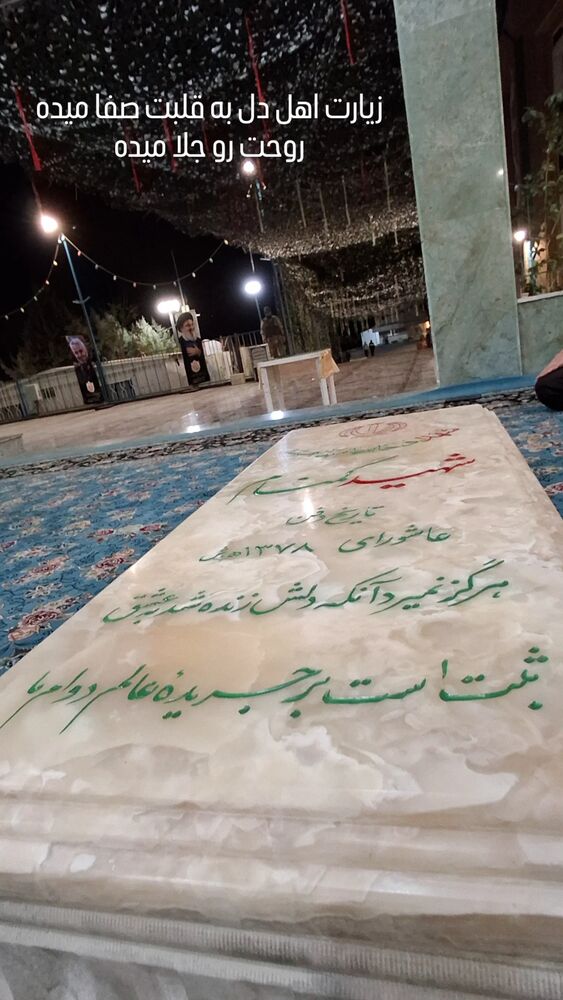 زیارت اهل دل به قلبت صفا میده
روحت رو جلا میده
شهید گمنام
تاریخ دفن
عاشورای ۱۳۷۸ ه‍.ش
هرگز نمیرد آنکه دلش زنده شد به عشق
ثبت است بر جریدهٔ عالم دوام ما